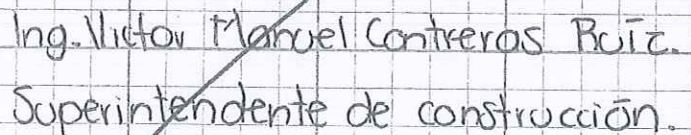 Ing. Victor Manuel Contreras Ruiz.
Superintendente de construcción.